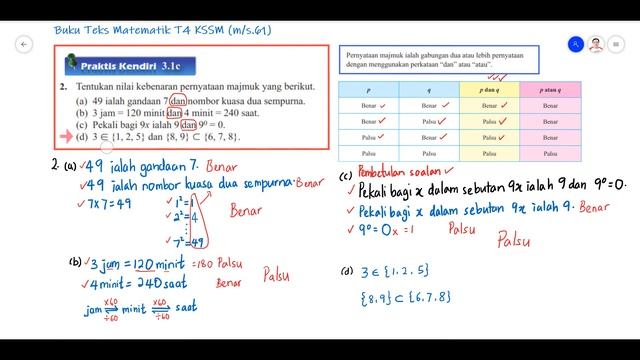 Buku Teks Matematik T4 KSSM (m/s.61)
Praktis Kendiri 3.1c
2. Tentukan nilai kebenaran pernyataan majmuk yang berikut.
(a) 49 ialah gandaan 7 dan nombor kuasa dua sempurna.
(b) 3 jam = 120 minit dan 4 minit = 240 saat.
(c) Pekali bagi 9x ialah 9 dan 9⁰ = 0.
(d) 3 ∈ {1, 2, 5} dan {8, 9} ⊂ {6, 7, 8}.
Pernyataan majmuk ialah gabungan dua atau lebih pernyataan
dengan menggunakan perkataan "dan" atau "atau".
p q p dan q p atau q
Benar ✓ Benar ✓ Benar ✓ Benar
Benar ✓ Palsu ✓ Palsu ✓ Benar
Palsu ✓ Benar ✓ Palsu ✓ Benar
Palsu Palsu Palsu Palsu
2. (a) ✓ 49 ialah gandaan 7. Benar
✓ 49 ialah nombor kuasa dua sempurna. Benar
✓ 7x7 = 49
✓ 1² = 1
2² = 4
⋮
7² = 49
Benar
(b) ✓ 3 jam = 120 minit = 180 Palsu
✓ 4 minit = 240 saat Benar
Palsu
jam ×60 ÷60 minit ×60 ÷60 saat
(c) Pembetulan soalan ✓
✓ Pekali bagi x dalam sebutan 9x ialah 9 dan 9⁰ = 0.
✓ Pekali bagi x dalam sebutan 9x ialah 9. Benar
✓ 9⁰ = 0 x = 1 Palsu
Palsu
(d) 3 ∈ {1, 2, 5}
{8, 9} ⊂ {6, 7, 8}